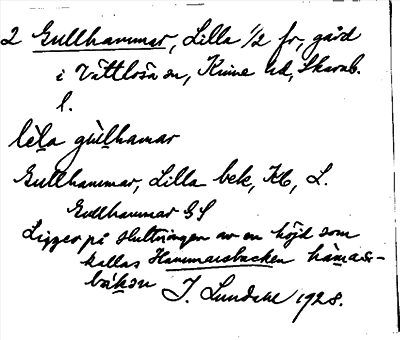 2 Gullhammar, Lilla 1/2 fr, gård
i Vättlösa sn, Kinne hd, Skarab.
l.
lìla gùlhamar
Gullhammar, Lilla bek, Kb, L.
Gullhammar GS
Ligger på sluttningen av en höjd som
kallas Hammarsbacken hàmas-
bàkən J. Lundahl 1928.